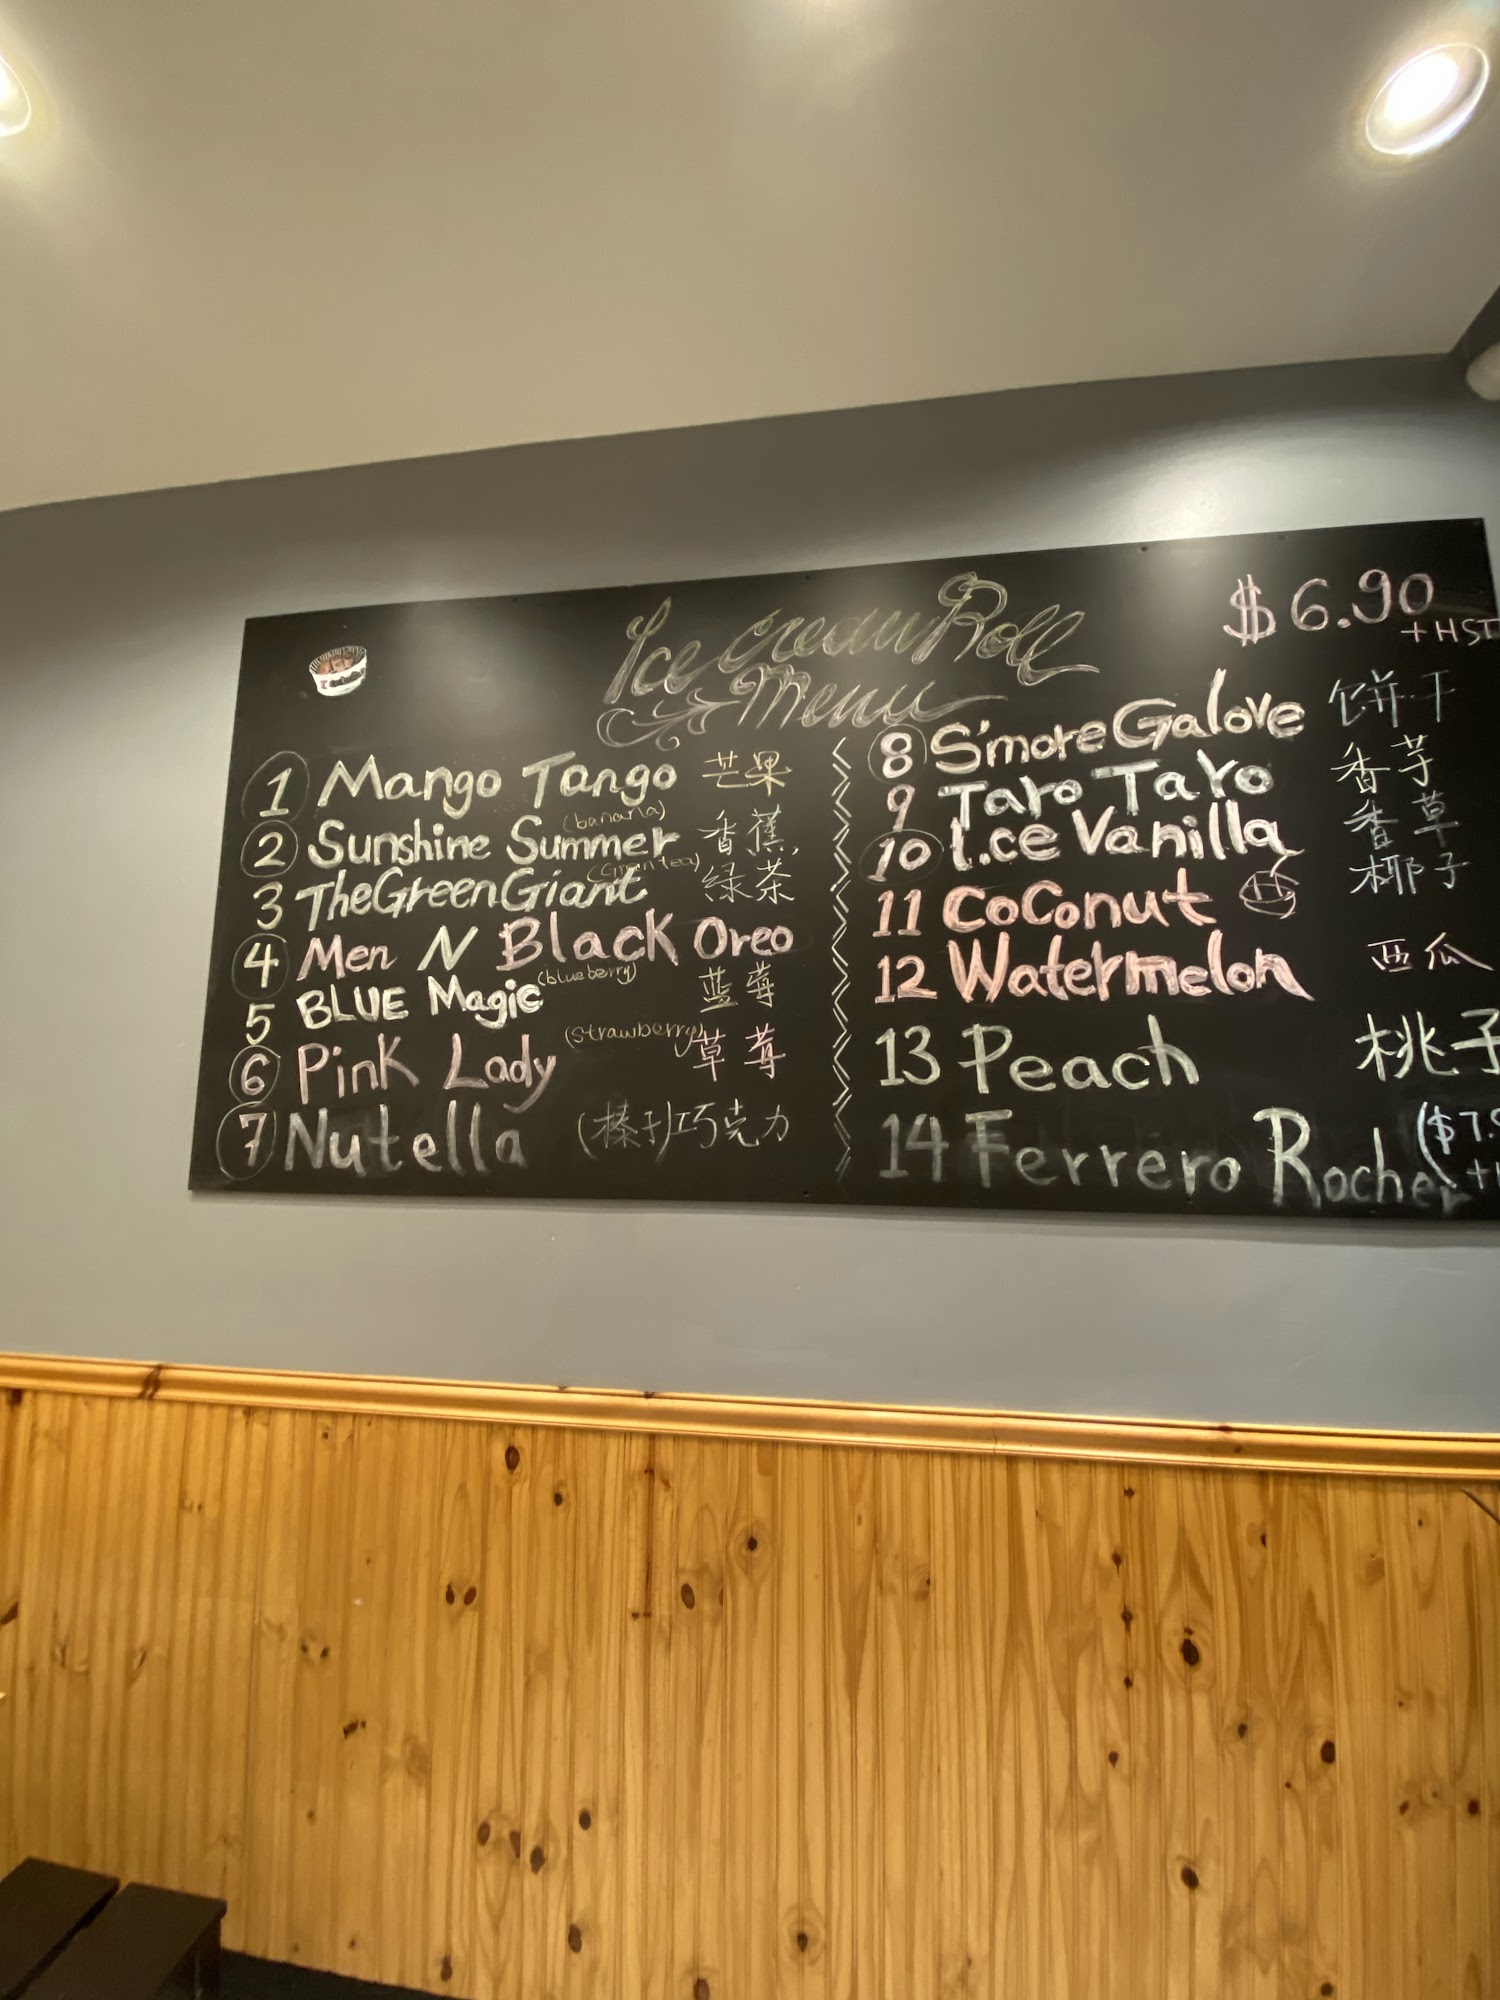 Ice Cream Roll
Menu
$6.90
+HST
1 Mango Tango 芒果
2 Sunshine Summer (banana) 香蕉
3 The Green Giant (Green tea) 绿茶
4 Men N Black Oreo
5 BLUE Magic (blueberry) 蓝莓
6 Pink Lady (strawberry) 草莓
7 Nutella (榛子)巧克力
8 S'more Galove 饼干
9 Taro Taro 香芋
10 I.ce Vanilla 香草
11 CoConut 椰子
12 Watermelon 西瓜
13 Peach 桃子
14 Ferrero Rocher